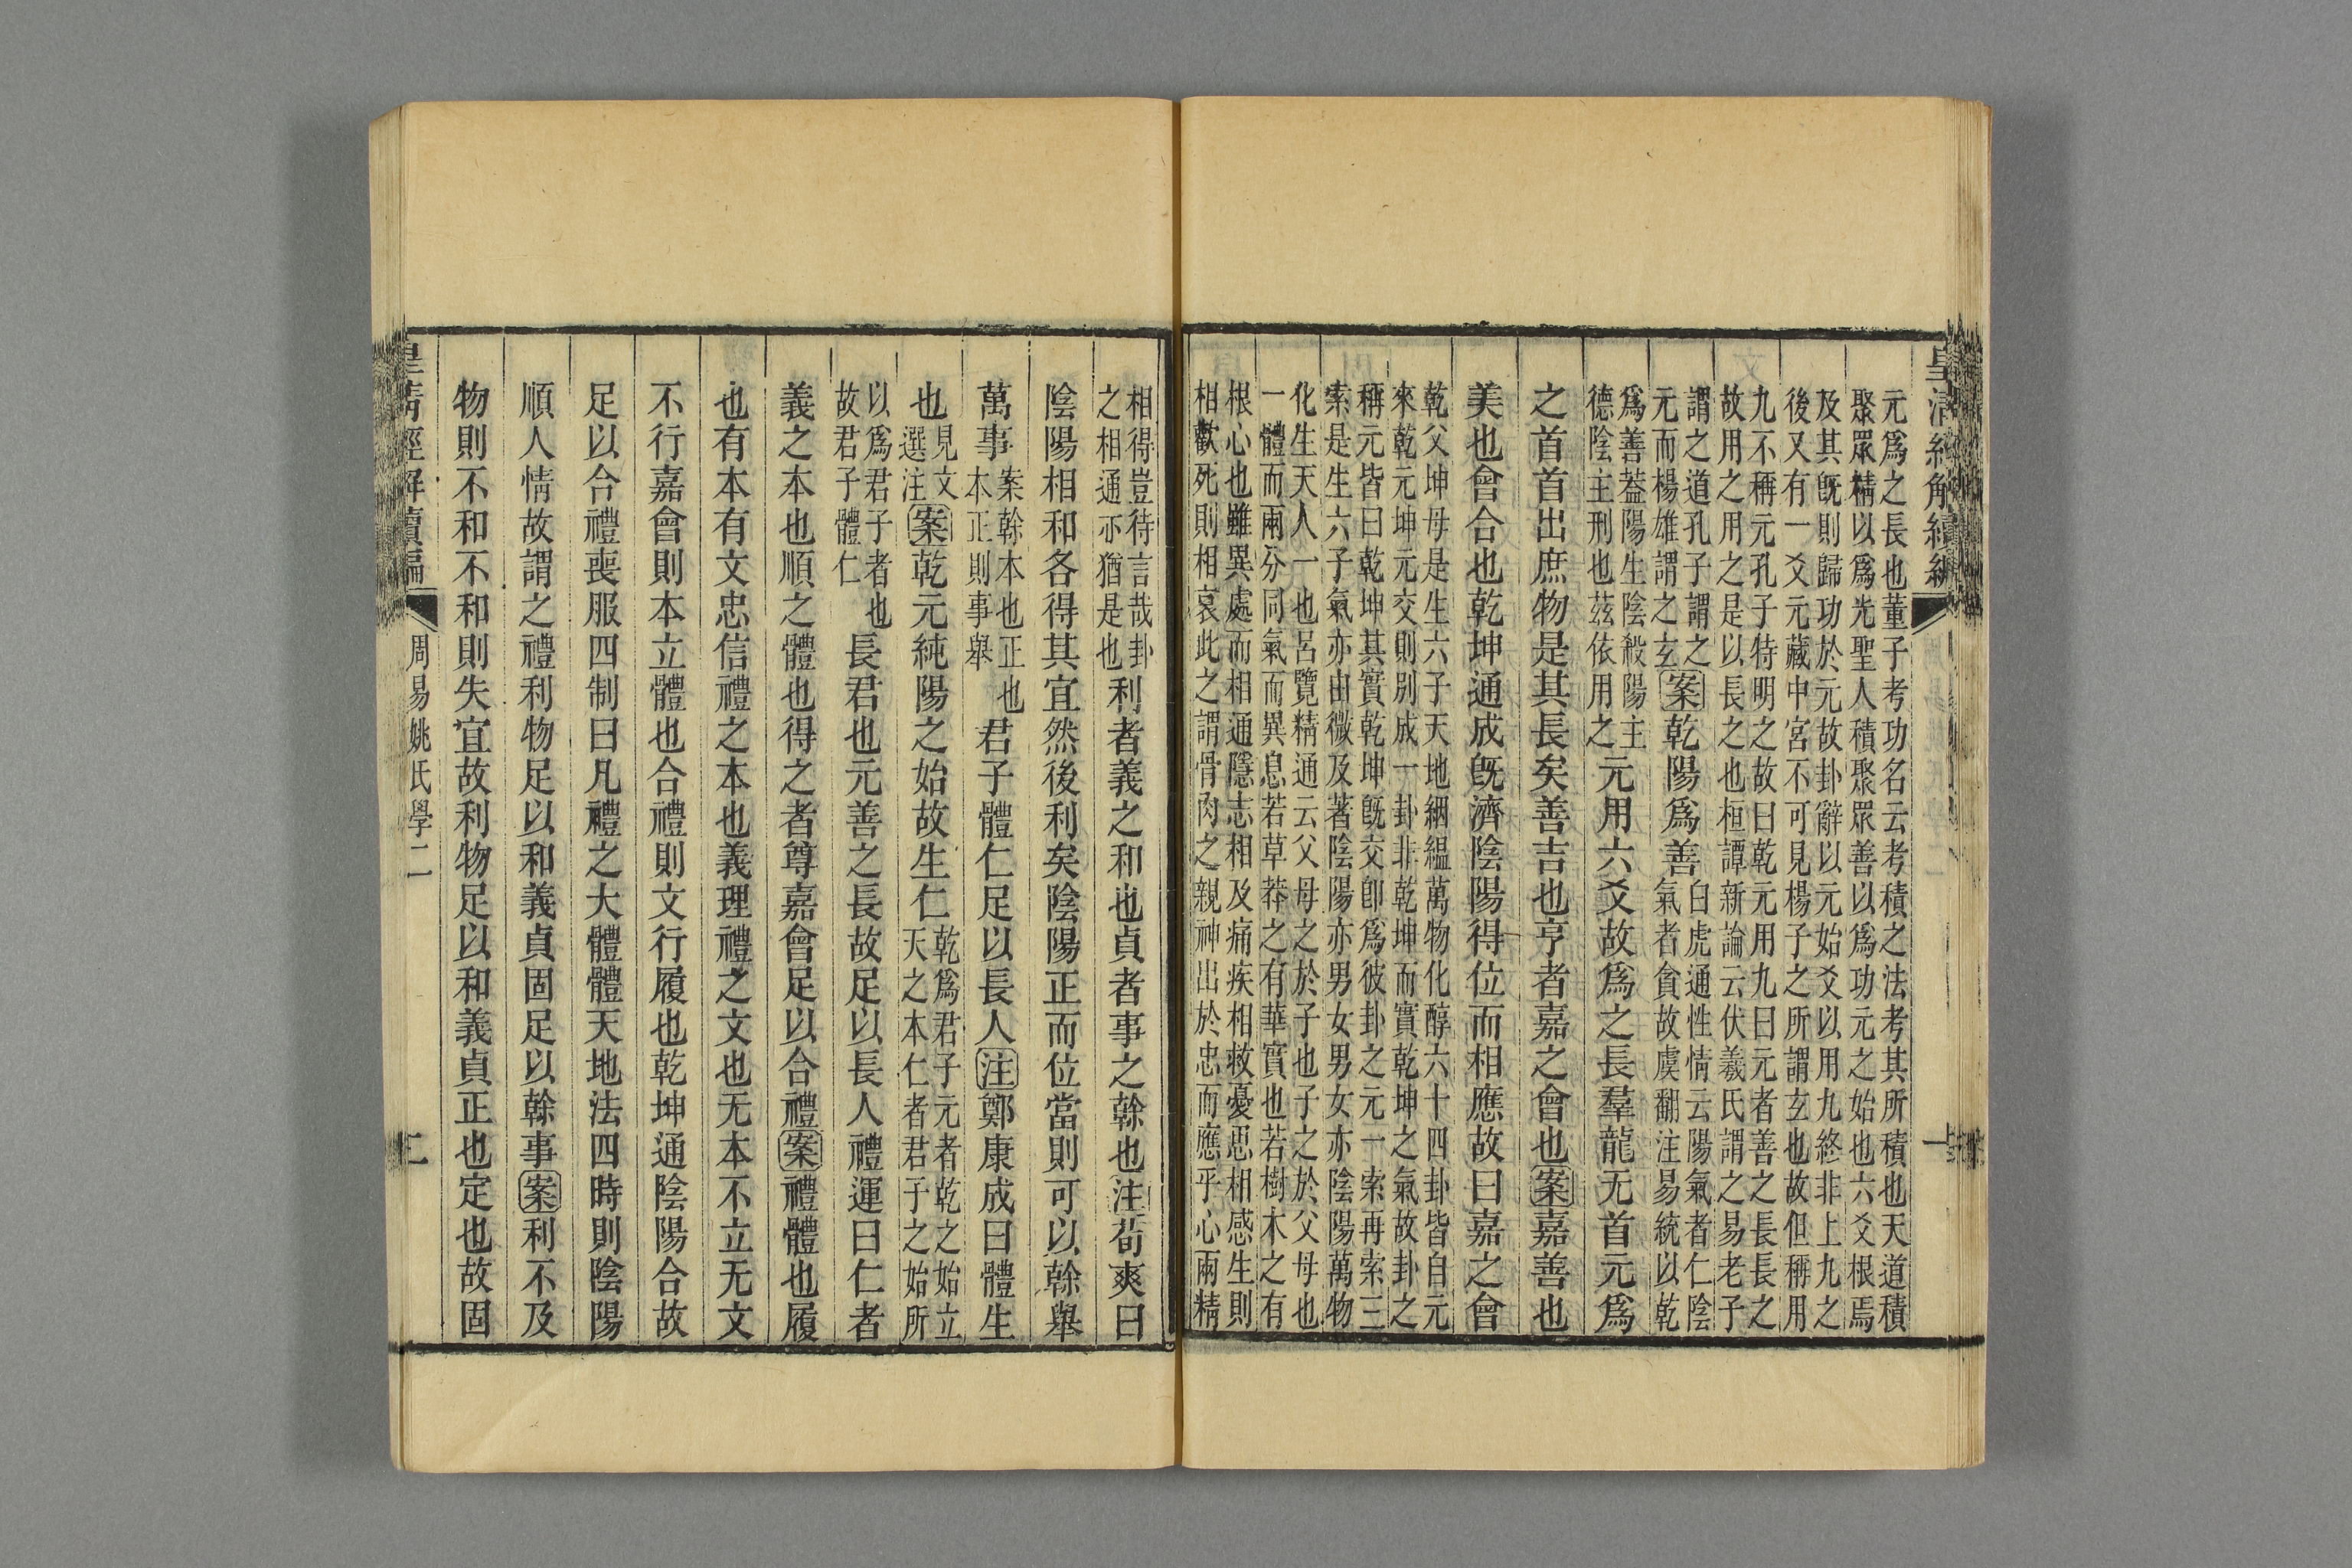 皇清經解續編
元爲之長也董子考功名云考積之法考其所積也天道積
聚眾精以爲光聖人積聚眾善以爲功元之始也六爻根焉
及其旣則歸功於元故卦辭以元始爻以用九終非上九之
後又有一爻元藏中宮不可見楊子之所謂玄也故但稱用
九不稱元孔子特明之故曰乾元用九曰元者善之長長之
故用之用之是以長之也桓譚新論云伏羲氏謂之易老子
謂之道孔子謂之
元而楊雄謂之玄案乾陽爲善白虎通性情云陽氣者仁陰
氣者貪故虞翻注易統以乾
爲善葢陽生陰殺陽主
德陰主刑也茲依用之元用六爻故爲之長羣龍无首元爲
之首首出庶物是其長矣善吉也亨者嘉之會也案嘉善也
美也會合也乾坤通成旣濟陰陽得位而相應故曰嘉之會
乾父坤母是生六子天地絪縕萬物化醇六十四卦皆自元
來乾元坤元交則別成一卦非乾坤而實乾坤之氣故卦之
稱元皆曰乾坤其實乾坤旣交卽爲彼卦之元一索再索三
索是生六子氣亦由微及著陰陽亦男女男女亦陰陽萬物
化生天人一也呂覽精通云父母之於子也子之於父母也
一體而兩分同氣而異息若草莽之有華實也若樹木之有
根心也雖異處而相通隱志相及痛疾相救憂思相感生則
相歡死則相哀此之謂骨肉之親神出於忠而應乎心兩精
相得豈待言哉卦
之相通亦猶是也利者義之和也貞者事之榦也注荀爽曰
陰陽相和各得其宜然後利矣陰陽正而位當則可以榦舉
萬事案榦本也正也
本正則事舉君子體仁足以長人注鄭康成曰體生
也見文
選注案乾元純陽之始故生仁乾爲君子元者乾之始立
天之本仁者君子之始所
以爲君子者也
故君子體仁長君也元善之長故足以長人禮運曰仁者
義之本也順之體也得之者尊嘉會足以合禮案禮體也履
也有本有文忠信禮之本也義理禮之文也无本不立无文
不行嘉會則本立體也合禮則文行履也乾坤通陰陽合故
足以合禮喪服四制曰凡禮之大體體天地法四時則陰陽
順人情故謂之禮利物足以和義貞固足以榦事案利不及
物則不和不和則失宜故利物足以和義貞正也定也故固
皇清經解續編
周易姚氏學二
二